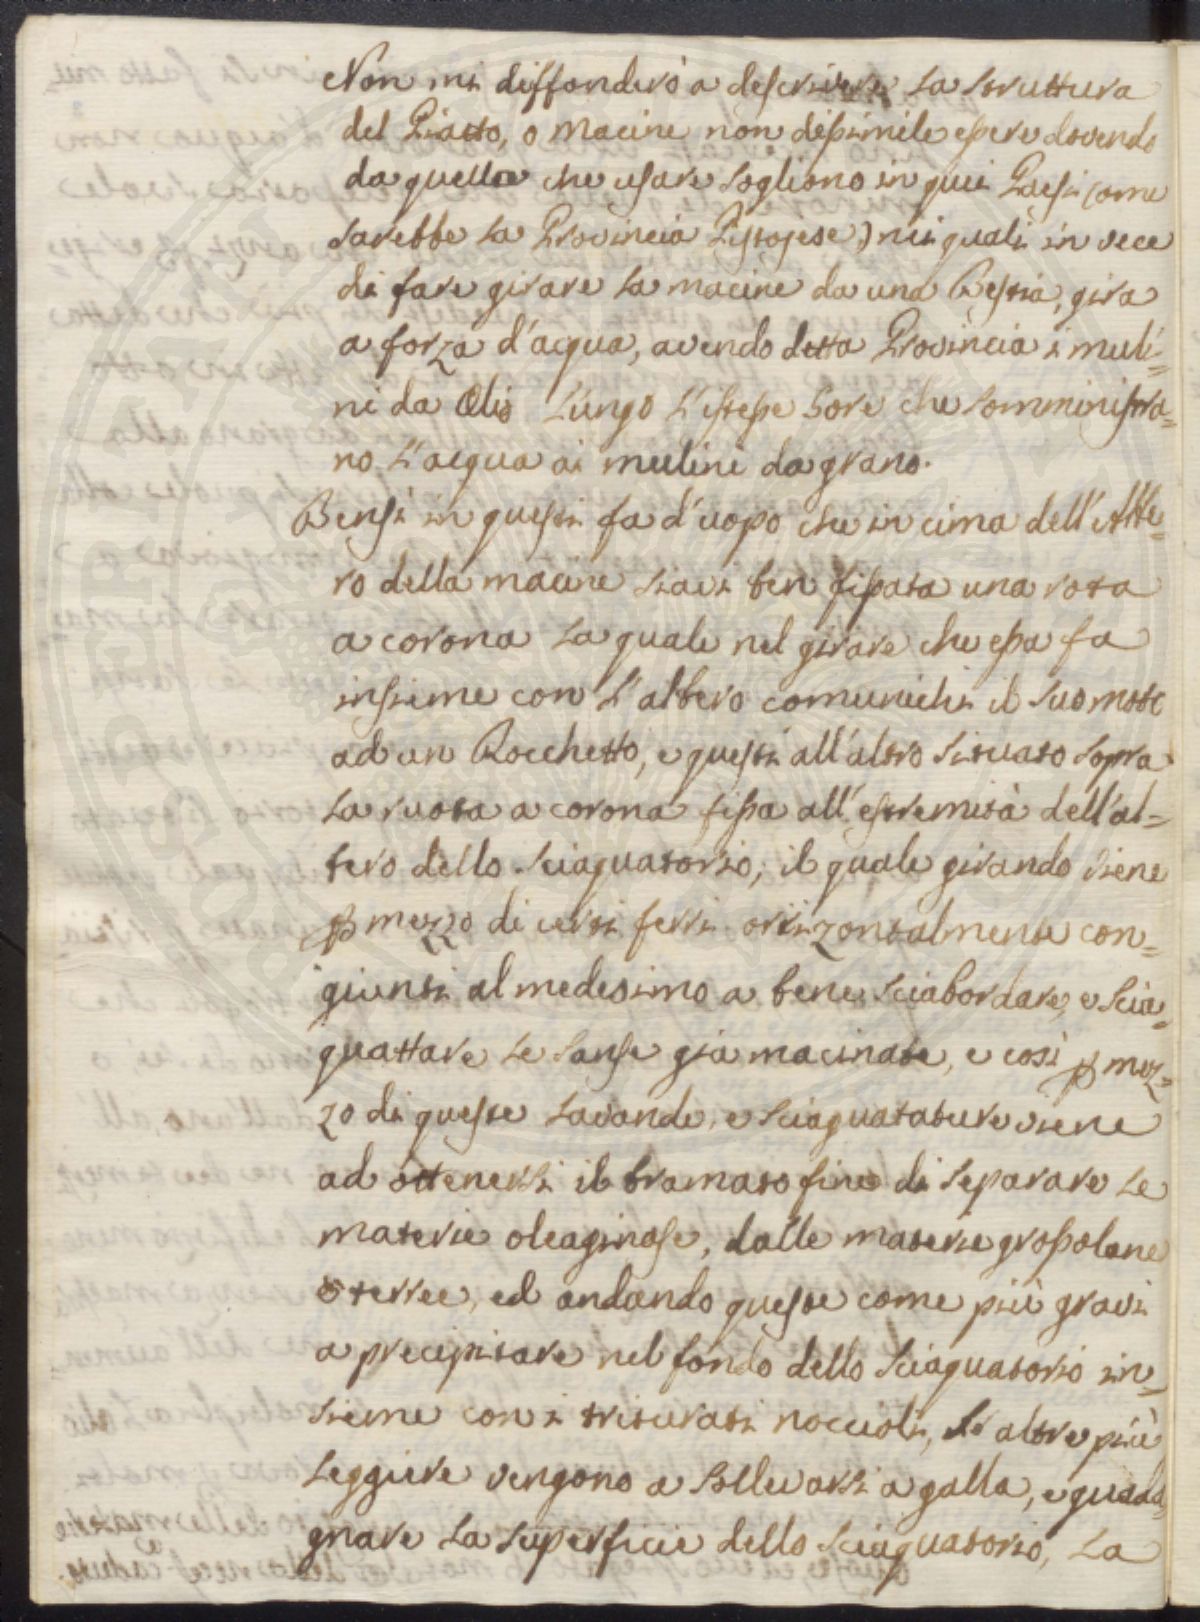 Non mi diffonderò a descrivere la struttura
del Piatto, o Macine non dissimile essere dovendo
da quella che usare sogliono in quei Paesi (ome
sarebbe la Provincia Pistojese) nei quali in vece
di fare girare la macine da una Bestia, gira
a forza d'acqua, avendo detta Provincia i muli=
ni da Olio lungo l'istesse Gore che somministra=
no l'acqua ai mulini da grano.
Bensì in questi fa d'uopo che in cima dell'Albe=
ro della macine siavi ben fissata una rota
a corona la quale nel girare che essa fa
insieme con l'albero comunichi il suo moto
ad un Rocchetto, e questi all'altro situato sopra
la ruota a corona fissa all'estremità dell'al=
bero dello sciaguatorio; il quale girando viene
p mezzo di certi ferri orrizontalmente con=
giunti al medesimo a bene sciabordare, e scia=
guattare le sanse gia macinate, e così p mez=
zo di queste lavande, e sciaguatature viene
ad ottenersi il bramato fine di separare le
materie oleaginose, dalle materie grossolane
e terree, ed andando queste come più gravi
a precipitare nel fondo dello sciaguatorio in=
sieme con i triturati noccioli, le altre più
leggiere vengono a sollevarsi a galla, e guada=
gnare la superficie dello sciaguatorio, la